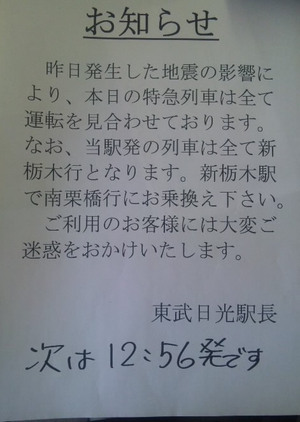 お知らせ
昨日発生した地震の影響に
より、本日の特急列車は全て
運転を見合わせております。
なお、当駅発の列車は全て新
栃木行となります。新栃木駅
で南栗橋行にお乗換え下さい。
ご利用のお客様には大変ご
迷惑をおかけいたします。
東武日光駅長
次は12:56発です